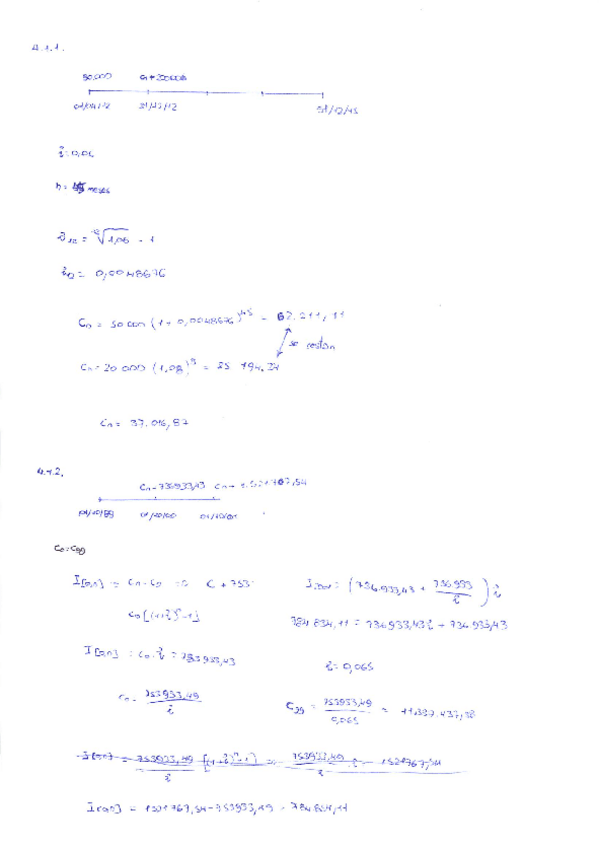 4.1.1.
50.000 Cn + 20000
01/04/12 31/12/12 31/12/15
i = 0,06
n = 45 meses
i12 = ¹²√1,06 - 1
i12 = 0,0048676
Cn = 50 000 (1 + 0,0048676)^45 = 62.211,11
se restan
Cn = 20 000 (1,08)^3 = 25 194,24
Cn = 37.016,87
4.1.2.
Cn - 736933,43 Cn + 1.521767,54
01/10/99 01/10/00 01/10/01
C0 = C99
I[0,n] = Cn - C0 = C + 753
C0[(1+i)^n - 1]
I2000 = (736.933,43 + 736933/i) i
784 834,11 = 736933,43 i + 736 933,43
I[0,n] = C0 · i = 753933,43
i = 0,065
C0 = 753933,49/i
C99 = 753933,49/0,065 = 11.337.437,38
I[0,n] = 753933,49/i [(1+i)^2 - 1] = 753933,49/i i - 1521767,54
I[0,n] = 1521767,54 - 753933,49 = 784834,11